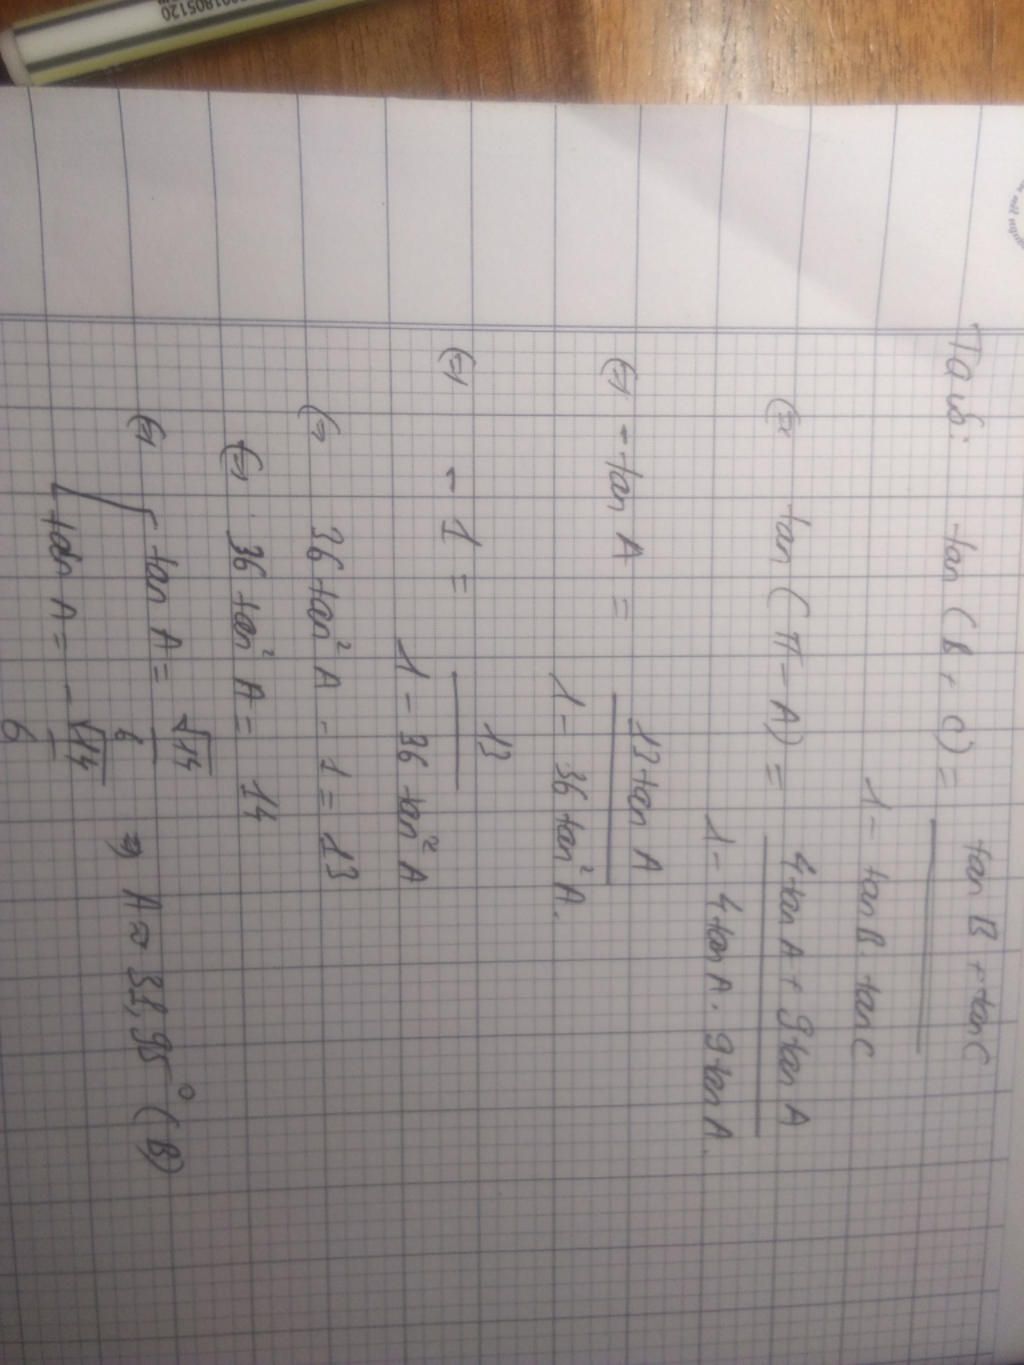 Ta có: tan (B + C) = tan B + tan C / 1 - tan B . tan C
⇔ tan (π - A) = 4 tan A + 9 tan A / 1 - 4 tan A . 9 tan A.
⇔ - tan A = 13 tan A / 1 - 36 tan² A.
⇔ - 1 = 13 / 1 - 36 tan² A
⇔ 36 tan² A - 1 = 13
⇔ 36 tan² A = 14
⇔ [ tan A = √14 / 6 ⇒ A ≈ 31,95° (B)
tan A = - √14 / 6
801805120